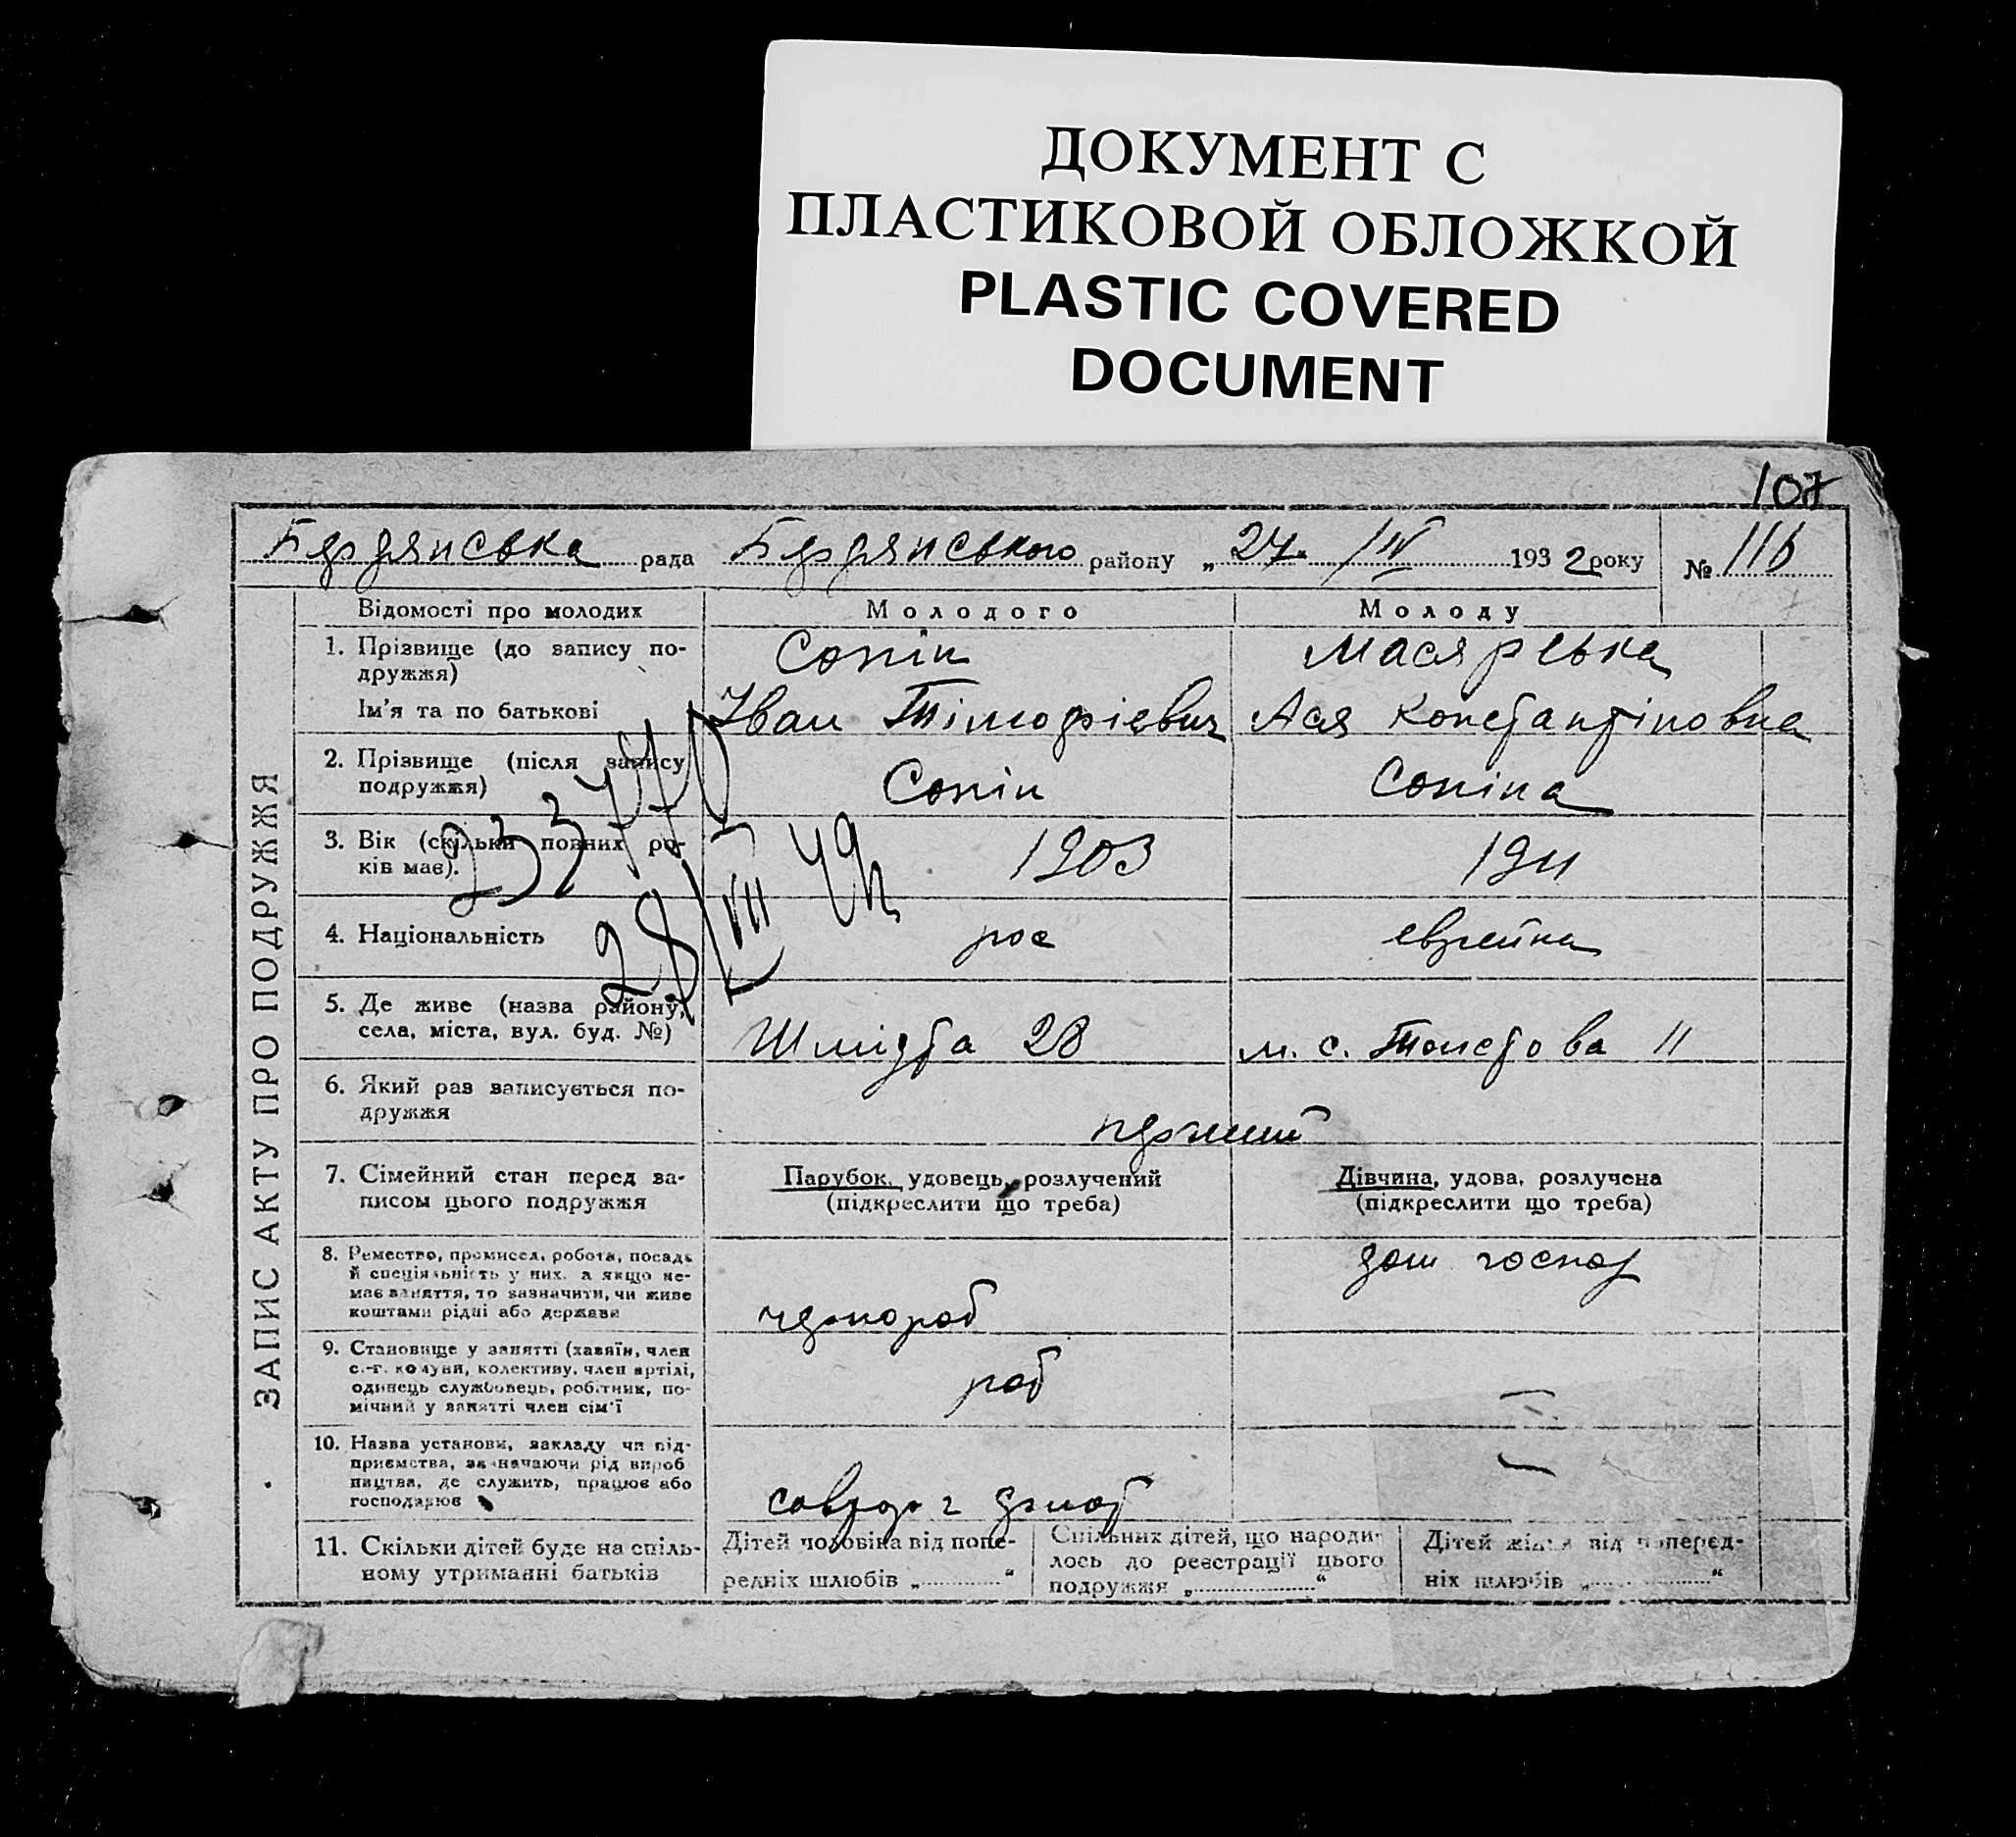 ДОКУМЕНТ С
ПЛАСТИКОВОЙ ОБЛОЖКОЙ
PLASTIC COVERED
DOCUMENT
107
Бердянська рада Бердянського району „ 27 193 2 року № 116
ЗАПИС АКТУ ПРО ПОДРУЖЖЯ
Відомості про молодих Молодого Молоду
1. Прізвище (до запису по-
дружжя)
Сопін
Ім'я та по батькові Іван Тімофієвич Ася Константіновна
2. Прізвище (після запису
подружжя) Сопін Сопіна
3. Вік (скільки повних ро-
ків має). 1903 1911
23377
28/VIII 49
4. Національність рос еврейка
5. Де живе (назва району,
села, міста, вул. буд. №) Шмідта 28 м. с. Толстова 11
6. Який раз записується по-
дружжя
перший
7. Сімейний стан перед за-
писом цього подружжя
Парубок, удовець, розлучений
(підкреслити що треба)
Дівчина, удова, розлучена
(підкреслити що треба)
8. Ремество, промисел, робота, посада
й спеціяльність у них, а якщо не-
має заняття, то зазначити, чи живе
коштами рідні або держави
чернороб
дом господ
9. Становище у занятті (хазяїн, член
с.-г. комуни, колективу, член артілі,
одинець службовець, робітник, по-
мічний у занятті член сім'ї
роб —
10. Назва установи, закладу чи під-
приємства, зазначаючи рід вироб
ництва, де служить, працює або
господарює
—
11. Скільки дітей буде на спіль-
ному утриманні батьків
Дітей чоловіка від попе-
редніх шлюбів „ “
Спільних дітей, що народи-
лось до реєстрації цього
подружжя „ “
Дітей жінки від поперед-
ніх шлюбів „ “